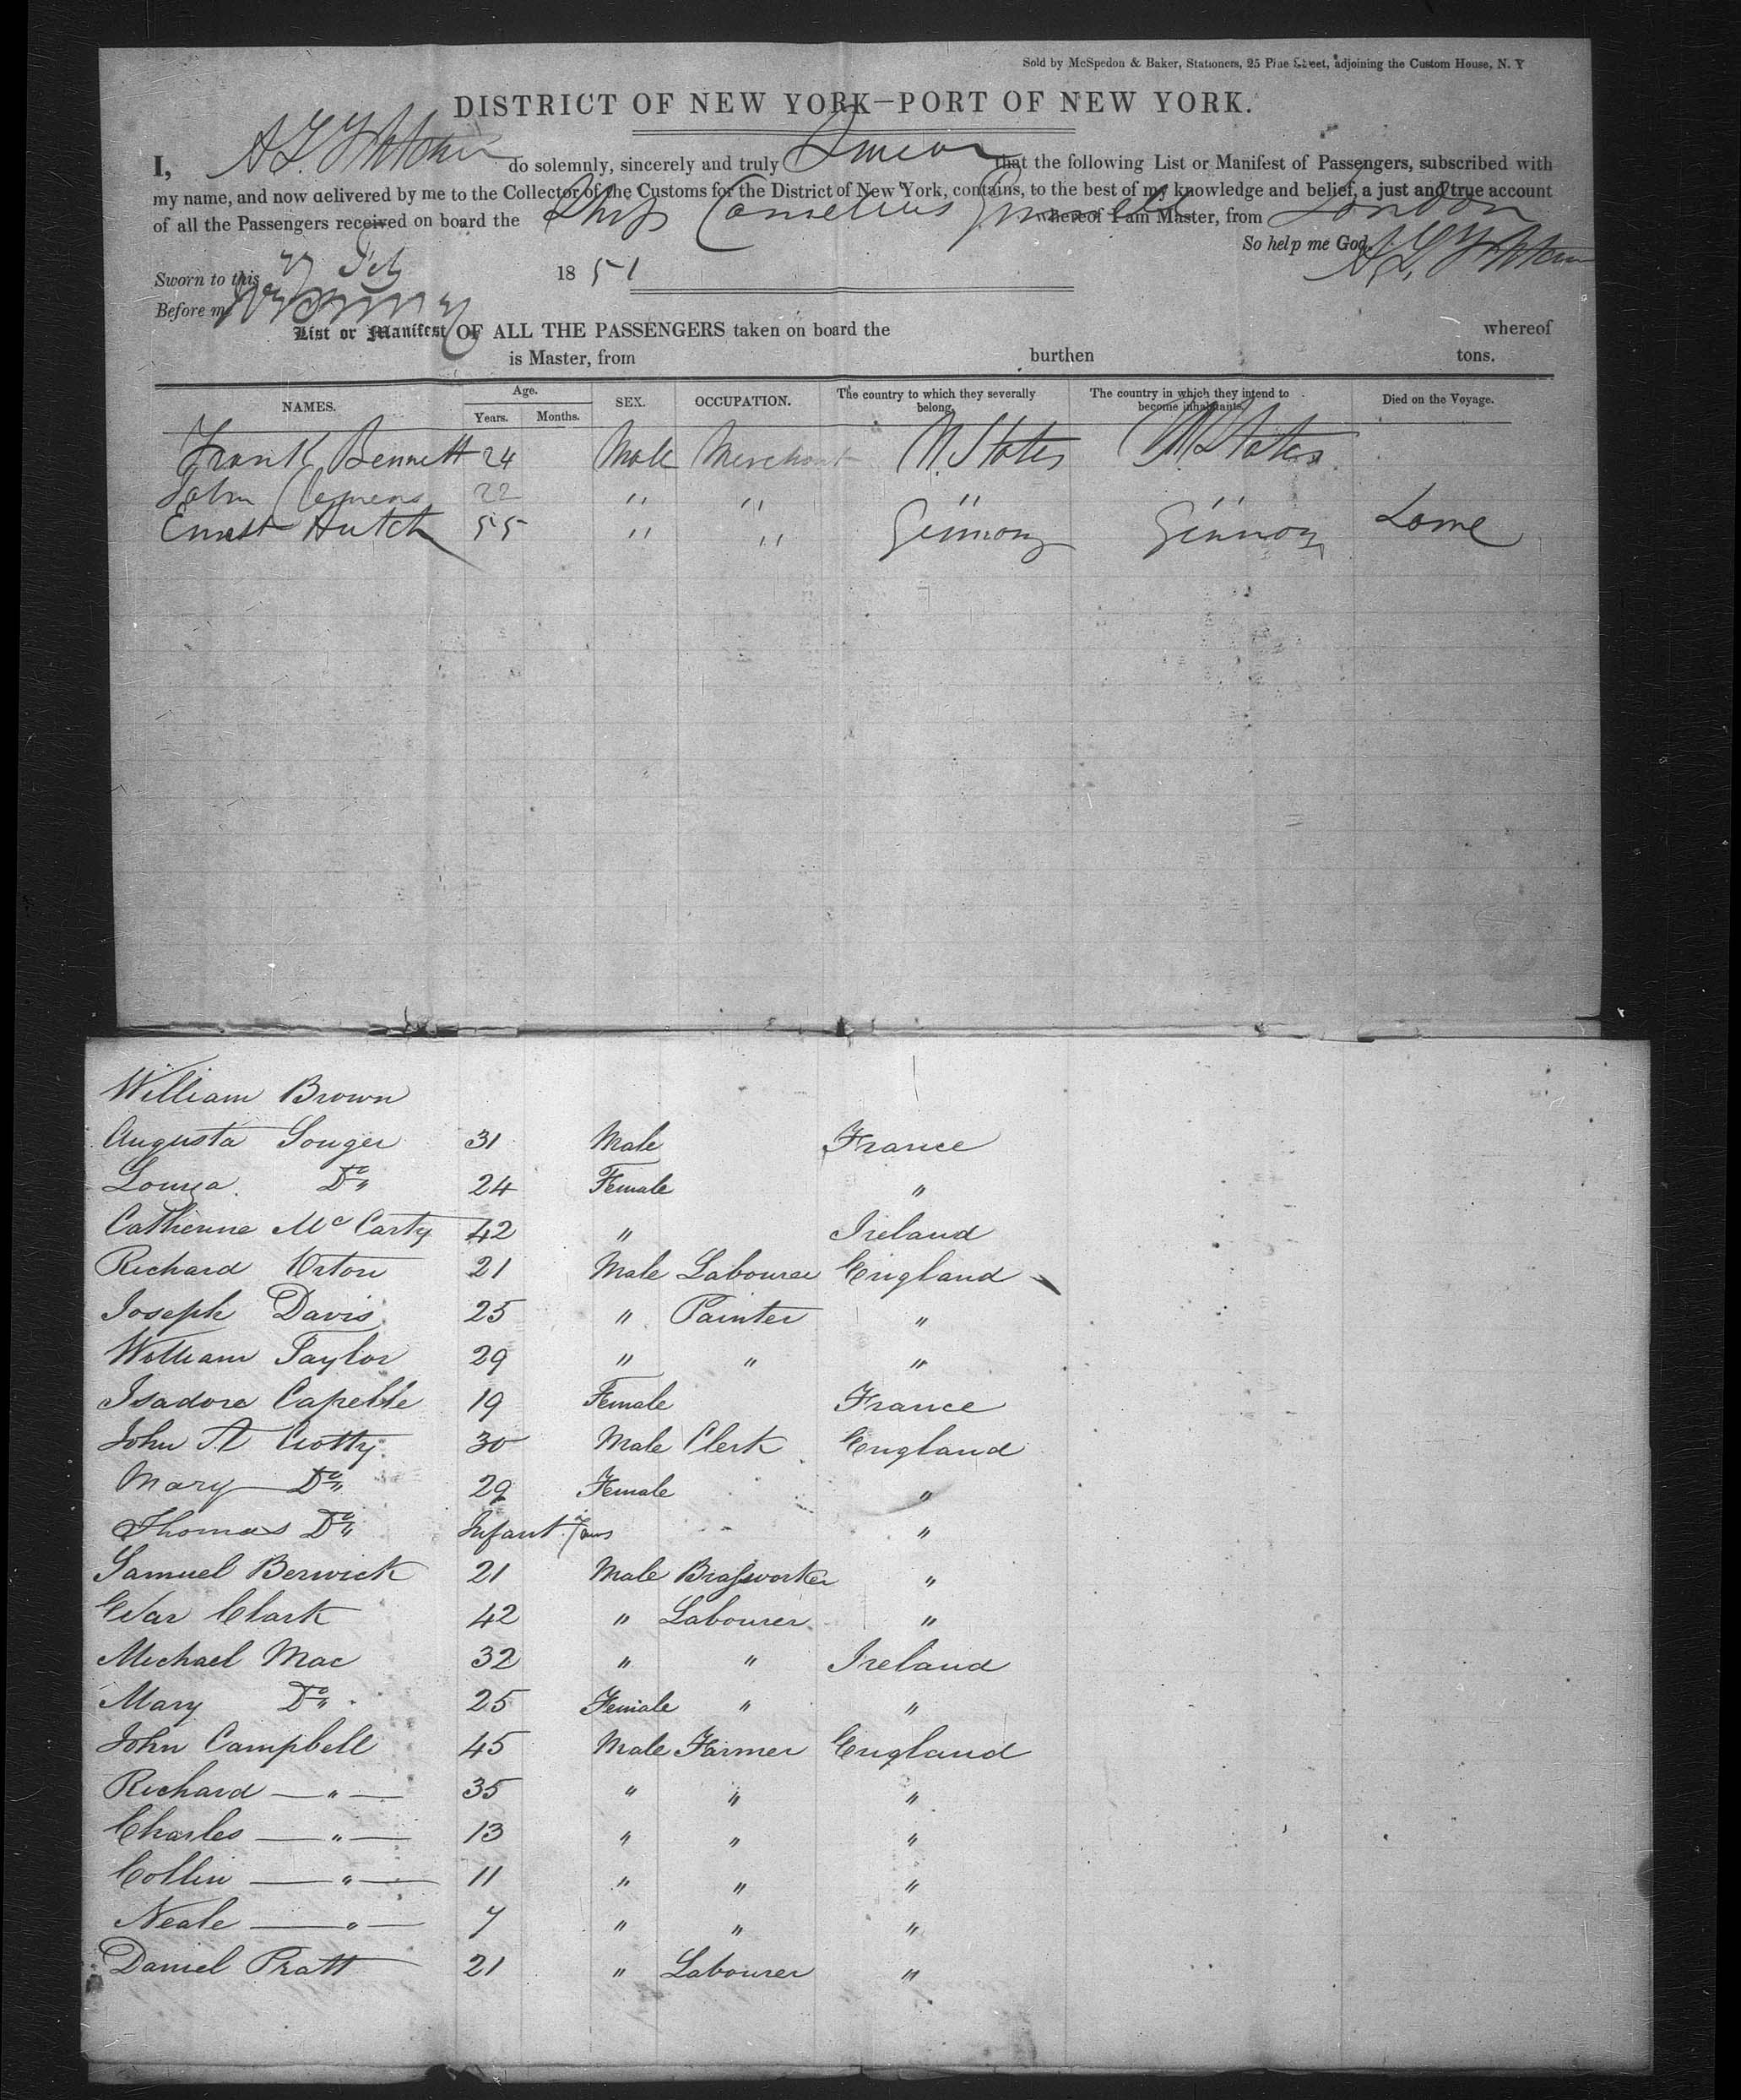 Sold by McSpedon & Baker, Stationers, 25 Pine Street, adjoining the Custom House, N. Y
DISTRICT OF NEW YORK—PORT OF NEW YORK.
I, do solemnly, sincerely and truly Swear that the following List or Manifest of Passengers, subscribed with
my name, and now delivered by me to the Collector of the Customs for the District of New York, contains, to the best of my knowledge and belief, a just and true account
of all the Passengers received on board the Ship Cornelius Grinnell whereof I am Master, from London
So help me God.
Sworn to this 27 Feb 1851
Before me
List or Manifest OF ALL THE PASSENGERS taken on board the whereof
is Master, from burthen tons.
NAMES. Age. Years. Months. SEX. OCCUPATION. The country to which they severally belong. The country in which they intend to become inhabitants. Died on the Voyage.
Frank Bennett 24 Male Merchant U. States U. States
John Clemens 22 " " " "
Ernest Hutch 55 " " Germany Germany
William Brown
Augusta Souger 31 Male France
Louisa Do 24 Female "
Catherine McCarty 42 " Ireland
Richard Orton 21 Male Labourer England
Joseph Davis 25 " Painter "
William Taylor 29 " " "
Isadore Capelle 19 Female France
John A Crotty 30 Male Clerk England
Mary Do 29 Female "
Thomas Do Infant "
Samuel Berwick 21 Male Brassworker "
Clark 42 " Labourer "
Michael Mac 32 " " Ireland
Mary Do 25 Female " "
John Campbell 45 Male Farmer England
Richard — " — 35 " " "
Charles — " — 13 " " "
Collin — " — 11 " " "
Neale — " — 7 " " "
Daniel Pratt 21 " Labourer "